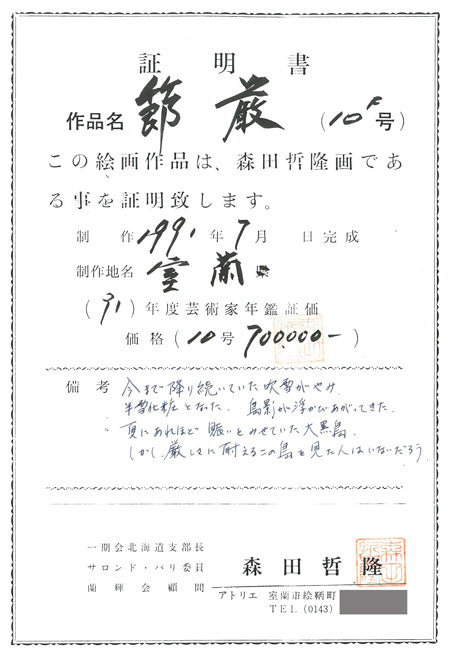 証明書
作品名 節 厳 (10F号)
この絵画作品は、森田哲隆画であ
る事を証明致します。
制 作 1991年7月 日完成
制作地名 室蘭
(91)年度芸術家年鑑証価
価格(10号 700,000-)
備考 今まで降り続いていた吹雪がやみ
半雪化粧となった. 島影が浮かびあがってきた.
夏にあれほど 賑いをみせていた大黒島.
しかし、厳しさに耐えるこの島を見た人はいないだろう
一期会北海道支部長
サロンド・パリ委員
蘭輝会顧問
森田哲隆
アトリエ 室蘭市絵鞆町
TEL(0143)